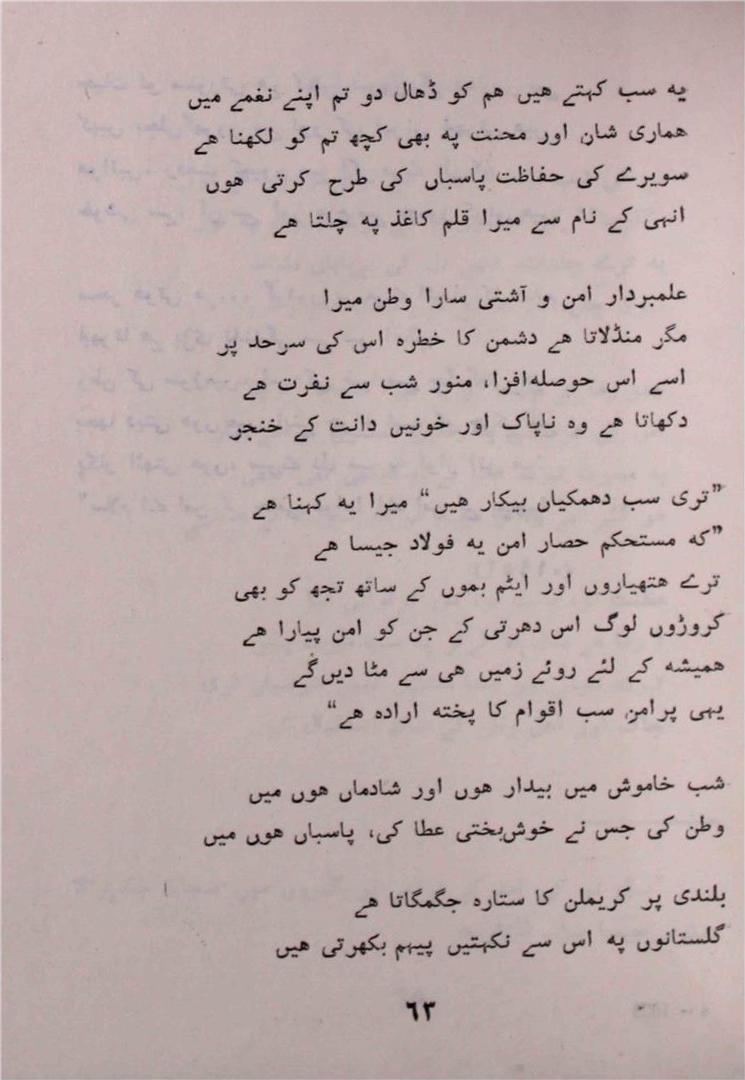 یه سب کہتے هیں هم کو ڈهال دو تم اپنے نغمے میں
هماری شان اور محنت په بهی کچھ تم کو لکهنا هے
سویرے کی حفاظت پاسباں کی طرح کرتی هوں
انہی کے نام سے میرا قلم کاغذ په چلتا هے
علمبردار امن و آشتی سارا وطن میرا
مگر منڈلاتا هے دشمن کا خطره اس کی سرحد پر
اسے اس حوصله‌افزا، منور شب سے نفرت هے
دکهاتا هے وه ناپاک اور خونیں دانت کے خنجر
”تری سب دهمکیاں بیکار هیں“ میرا یه کہنا هے
”که مستحکم حصار امن یه فولاد جیسا هے
ترے هتهیاروں اور ایٹم بموں کے ساتھ تجھ کو بهی
کروڑوں لوگ اس دهرتی کے جن کو امن پیارا هے
همیشه کے لئے روئے زمیں هی سے مٹا دیں‌گے
یہی پرامن سب اقوام کا پخته اراده هے“
شب خاموش میں بیدار هوں اور شادماں هوں میں
وطن کی جس نے خوش‌بختی عطا کی، پاسباں هوں میں
بلندی پر کریملن کا ستاره جگمگاتا هے
گلستانوں په اس سے نکہتیں پیہم بکهرتی هیں
٦٣